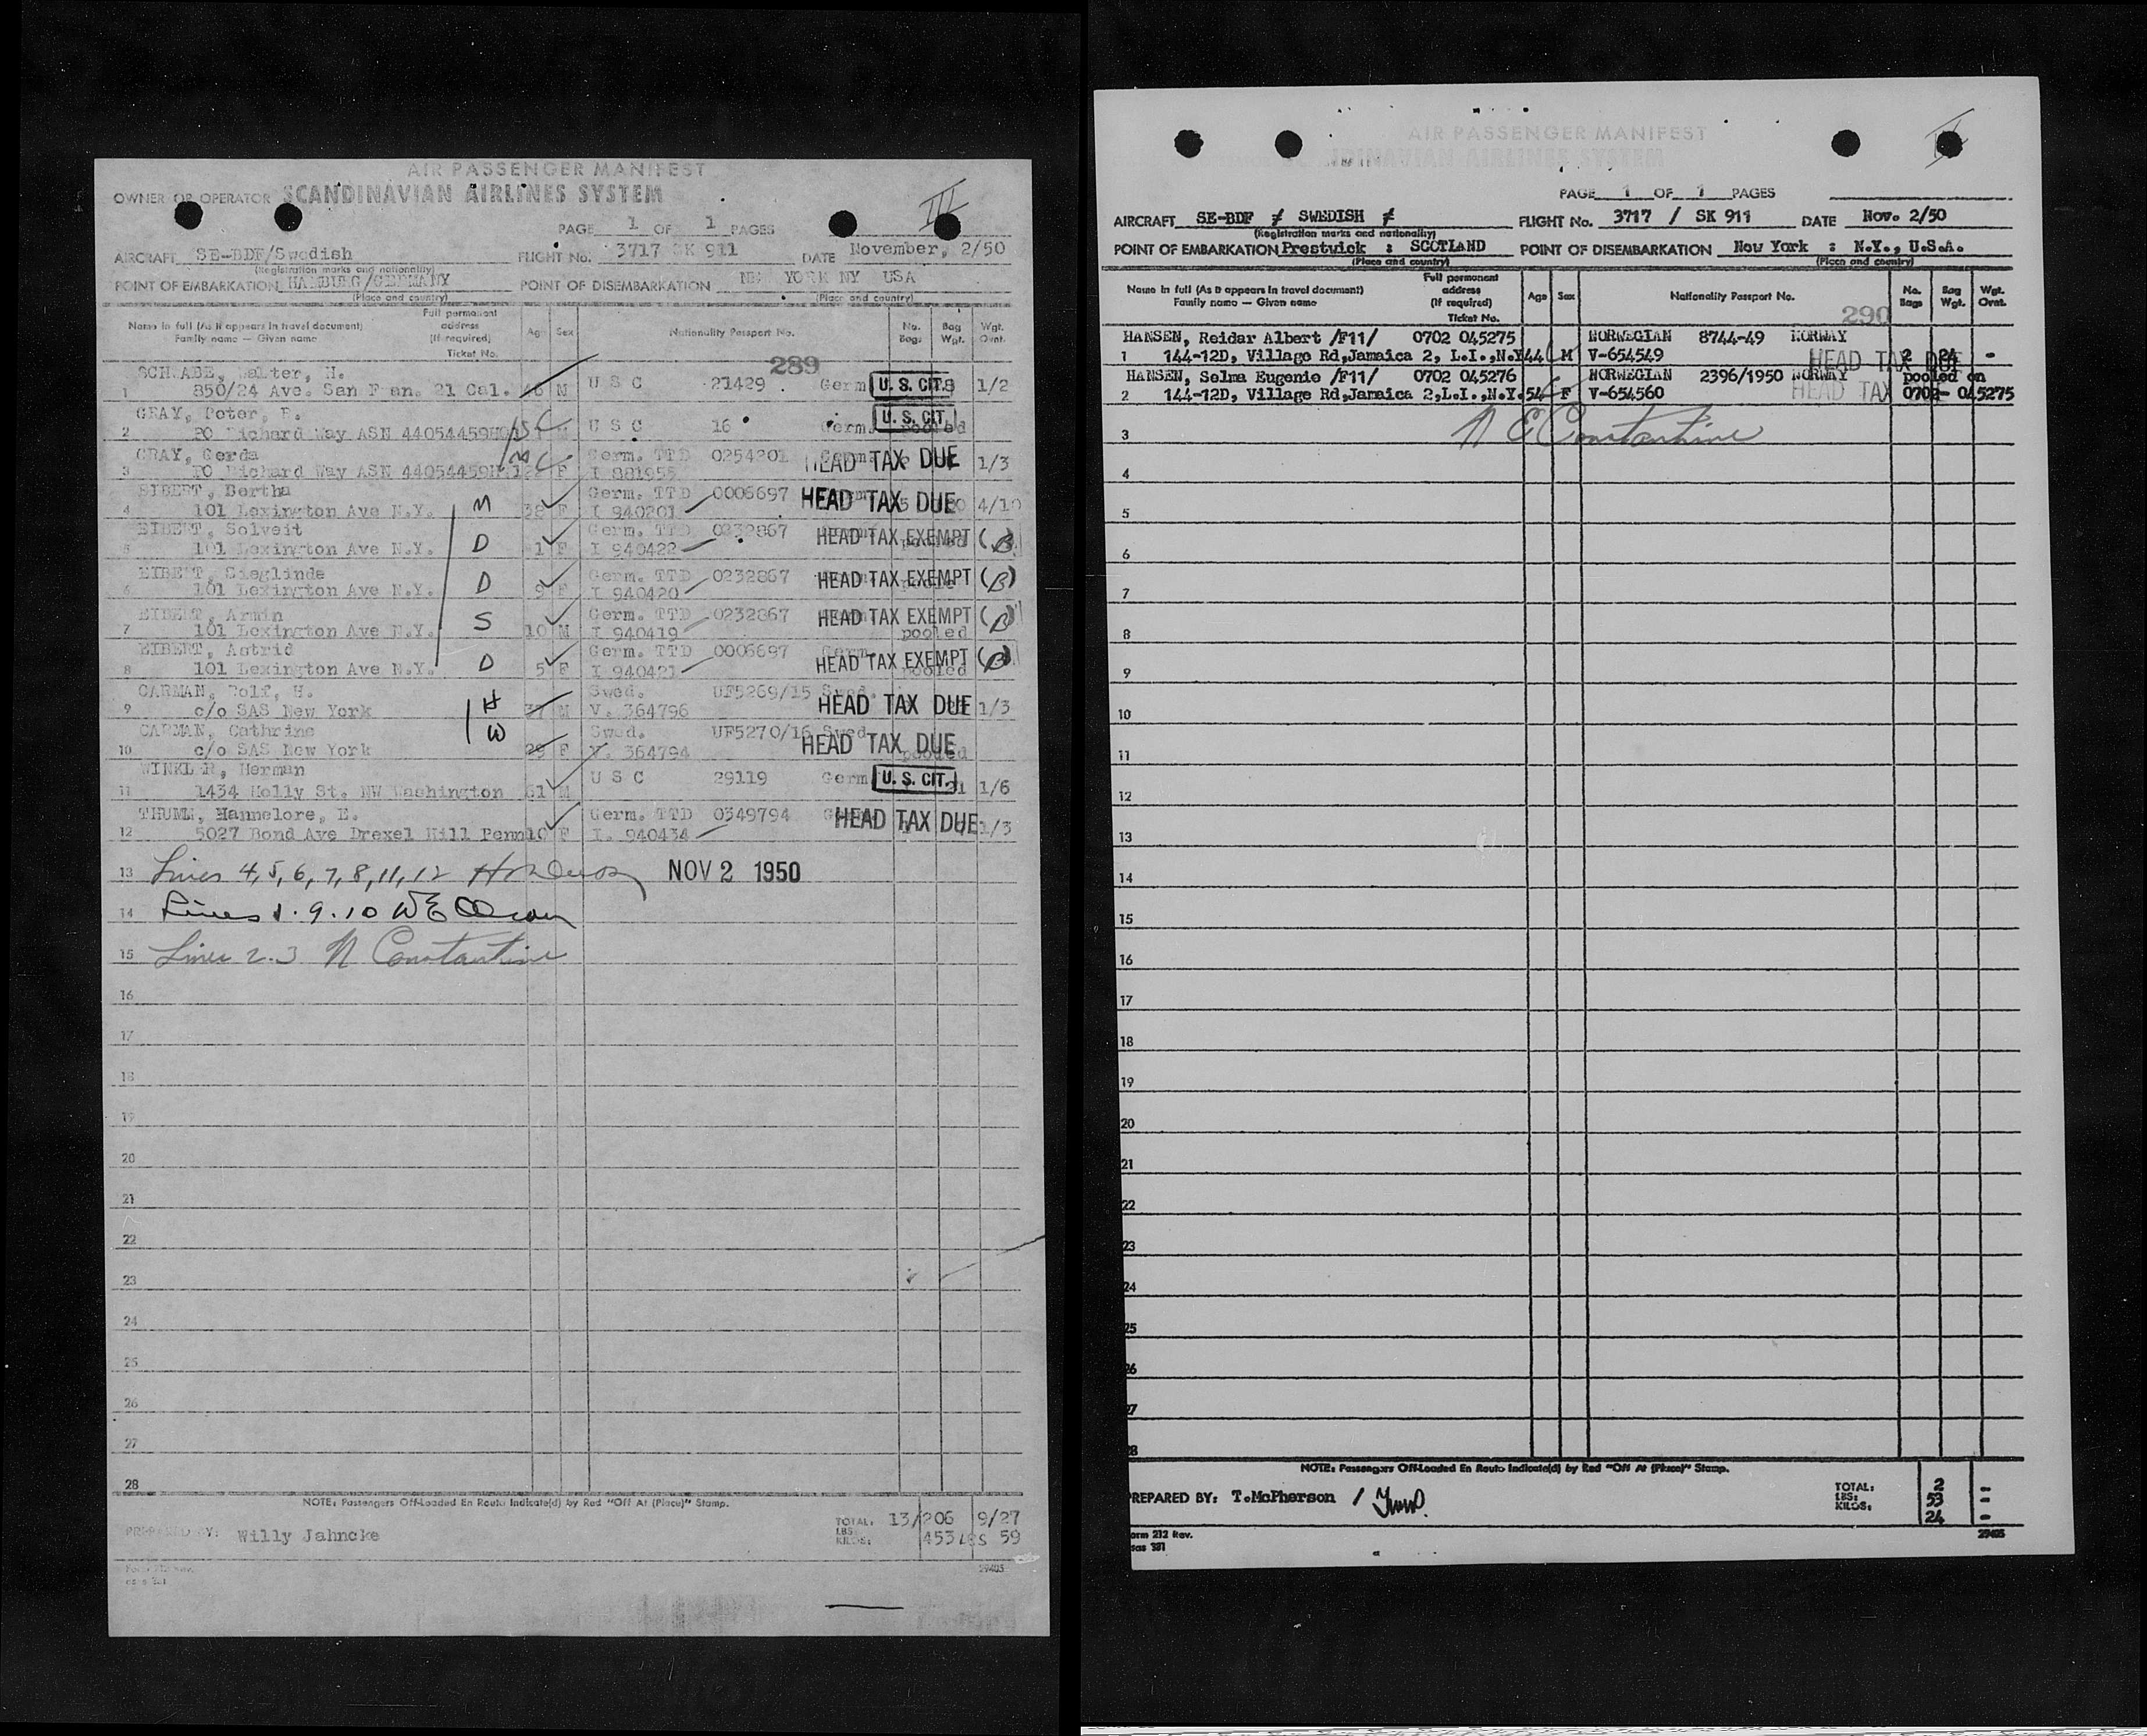 AIR PASSENGER MANIFEST
OWNER OR OPERATOR SCANDINAVIAN AIRLINES SYSTEM
III
PAGE 1 OF 1 PAGES
AIRCRAFT SE-BDF/Swedish FLIGHT No. 3717 SK 911 DATE November, 2/50
(Registration marks and nationality)
POINT OF EMBARKATION HAMBURG/GERMANY POINT OF DISEMBARKATION NEW YORK NY USA
(Place and country) (Place and country)
Name in full (As it appears in travel document) Family name — Given name Full permanent address (If required) Ticket No. Age Sex Nationality Passport No. No. Bags Bag Wgt. Wgt. Ovnt.
289
SCHWABE, Walter, H.
1 850/24 Ave. San Fran. 21 Cal. 46 M U S C 21429 Germ U. S. CIT. 1/2
GRAY, Peter, R.
2 PO Richard Way ASN 44054459 M U S C 16 Germ. U. S. CIT. pooled
GRAY, Gerda Germ. TTD 0254201
3 PO Richard Way ASN 44054459 F I 881955 HEAD TAX DUE 1/3
EIBERT, Bertha Germ. TTD 0006697
4 101 Lexington Ave N.Y. M 38 F I 940201 HEAD TAX DUE 4/10
EIBERT, Solveit Germ. TTD 0232867
5 101 Lexington Ave N.Y. D 1 F I 940422 HEAD TAX EXEMPT (B)
EIBERT, Sieglinde Germ. TTD 0232867
6 101 Lexington Ave N.Y. D 9 F I 940420 HEAD TAX EXEMPT (B)
EIBERT, Armin Germ. TTD 0232867
7 101 Lexington Ave N.Y. S 10 M I 940419 HEAD TAX EXEMPT (B) pooled
EIBERT, Astrid Germ. TTD 0006697
8 101 Lexington Ave N.Y. D 5 F I 940421 HEAD TAX EXEMPT (B) pooled
CARMAN, Rolf, H. Swed. UF5269/15 Swed.
9 c/o SAS New York H 37 M V. 364796 HEAD TAX DUE 1/3
CARMAN, Cathrine Swed. UF5270/16 Swed.
10 c/o SAS New York W 29 F V. 364794 HEAD TAX DUE pooled
WINKLER, Herman U S C 29119 Germ U. S. CIT.
11 1434 Holly St. NW Washington 61 M 21 1/6
THUMM, Hannelore, E. Germ. TTD 0349794
12 5027 Bond Ave Drexel Hill Penn 10 F I. 940434 HEAD TAX DUE 1/3
13 Lines 4, 5, 6, 7, 8, 11, 12 NOV 2 1950
14 Lines 1. 9. 10
15 Lines 2. 3 N Constantine
16
17
18
19
20
21
22
23
24
25
26
27
28
NOTE: Passengers Off-Loaded En Route Indicate(d) by Red "Off At (Place)" Stamp.
PREPARED BY: Willy Jahncke TOTAL: 13/206 9/27
LBS: KILOS: 453 LBS 59
29405
AIR PASSENGER MANIFEST
SCANDINAVIAN AIRLINES SYSTEM
PAGE 1 OF 1 PAGES
AIRCRAFT SE-BDF ≠ SWEDISH ≠ FLIGHT No. 3717 / SK 911 DATE Nov. 2/50
(Registration marks and nationality)
POINT OF EMBARKATION Prestwick : SCOTLAND POINT OF DISEMBARKATION New York : N.Y., U.S.A.
(Place and country) (Place and country)
Name in full (As it appears in travel document) Family name — Given name Full permanent address (If required) Ticket No. Age Sex Nationality Passport No. No. Bags Bag Wgt. Wgt. Ovnt.
290
HANSEN, Reidar Albert /F11/ 0702 045275 NORWEGIAN 8744-49 NORWAY
1 144-12D, Village Rd, Jamaica 2, L.I.,N.Y 44 M V-654549 HEAD TAX DUE 2 24 -
HANSEN, Selma Eugenie /F11/ 0702 045276 NORWEGIAN 2396/1950 NORWAY pooled on
2 144-12D, Village Rd, Jamaica 2,L.I.,N.Y. 54 F V-654560 HEAD TAX 0702- 045275
3 N E Constantine
4
5
6
7
8
9
10
11
12
13
14
15
16
17
18
19
20
21
22
23
24
25
26
27
28
NOTE: Passengers Off-Loaded En Route Indicate(d) by Red "Off At (Place)" Stamp.
PREPARED BY: T.McPherson / TOTAL: 2 -
LBS: 53 -
KILOS: 24 -
Form 212 Rev. 29405
sas 381